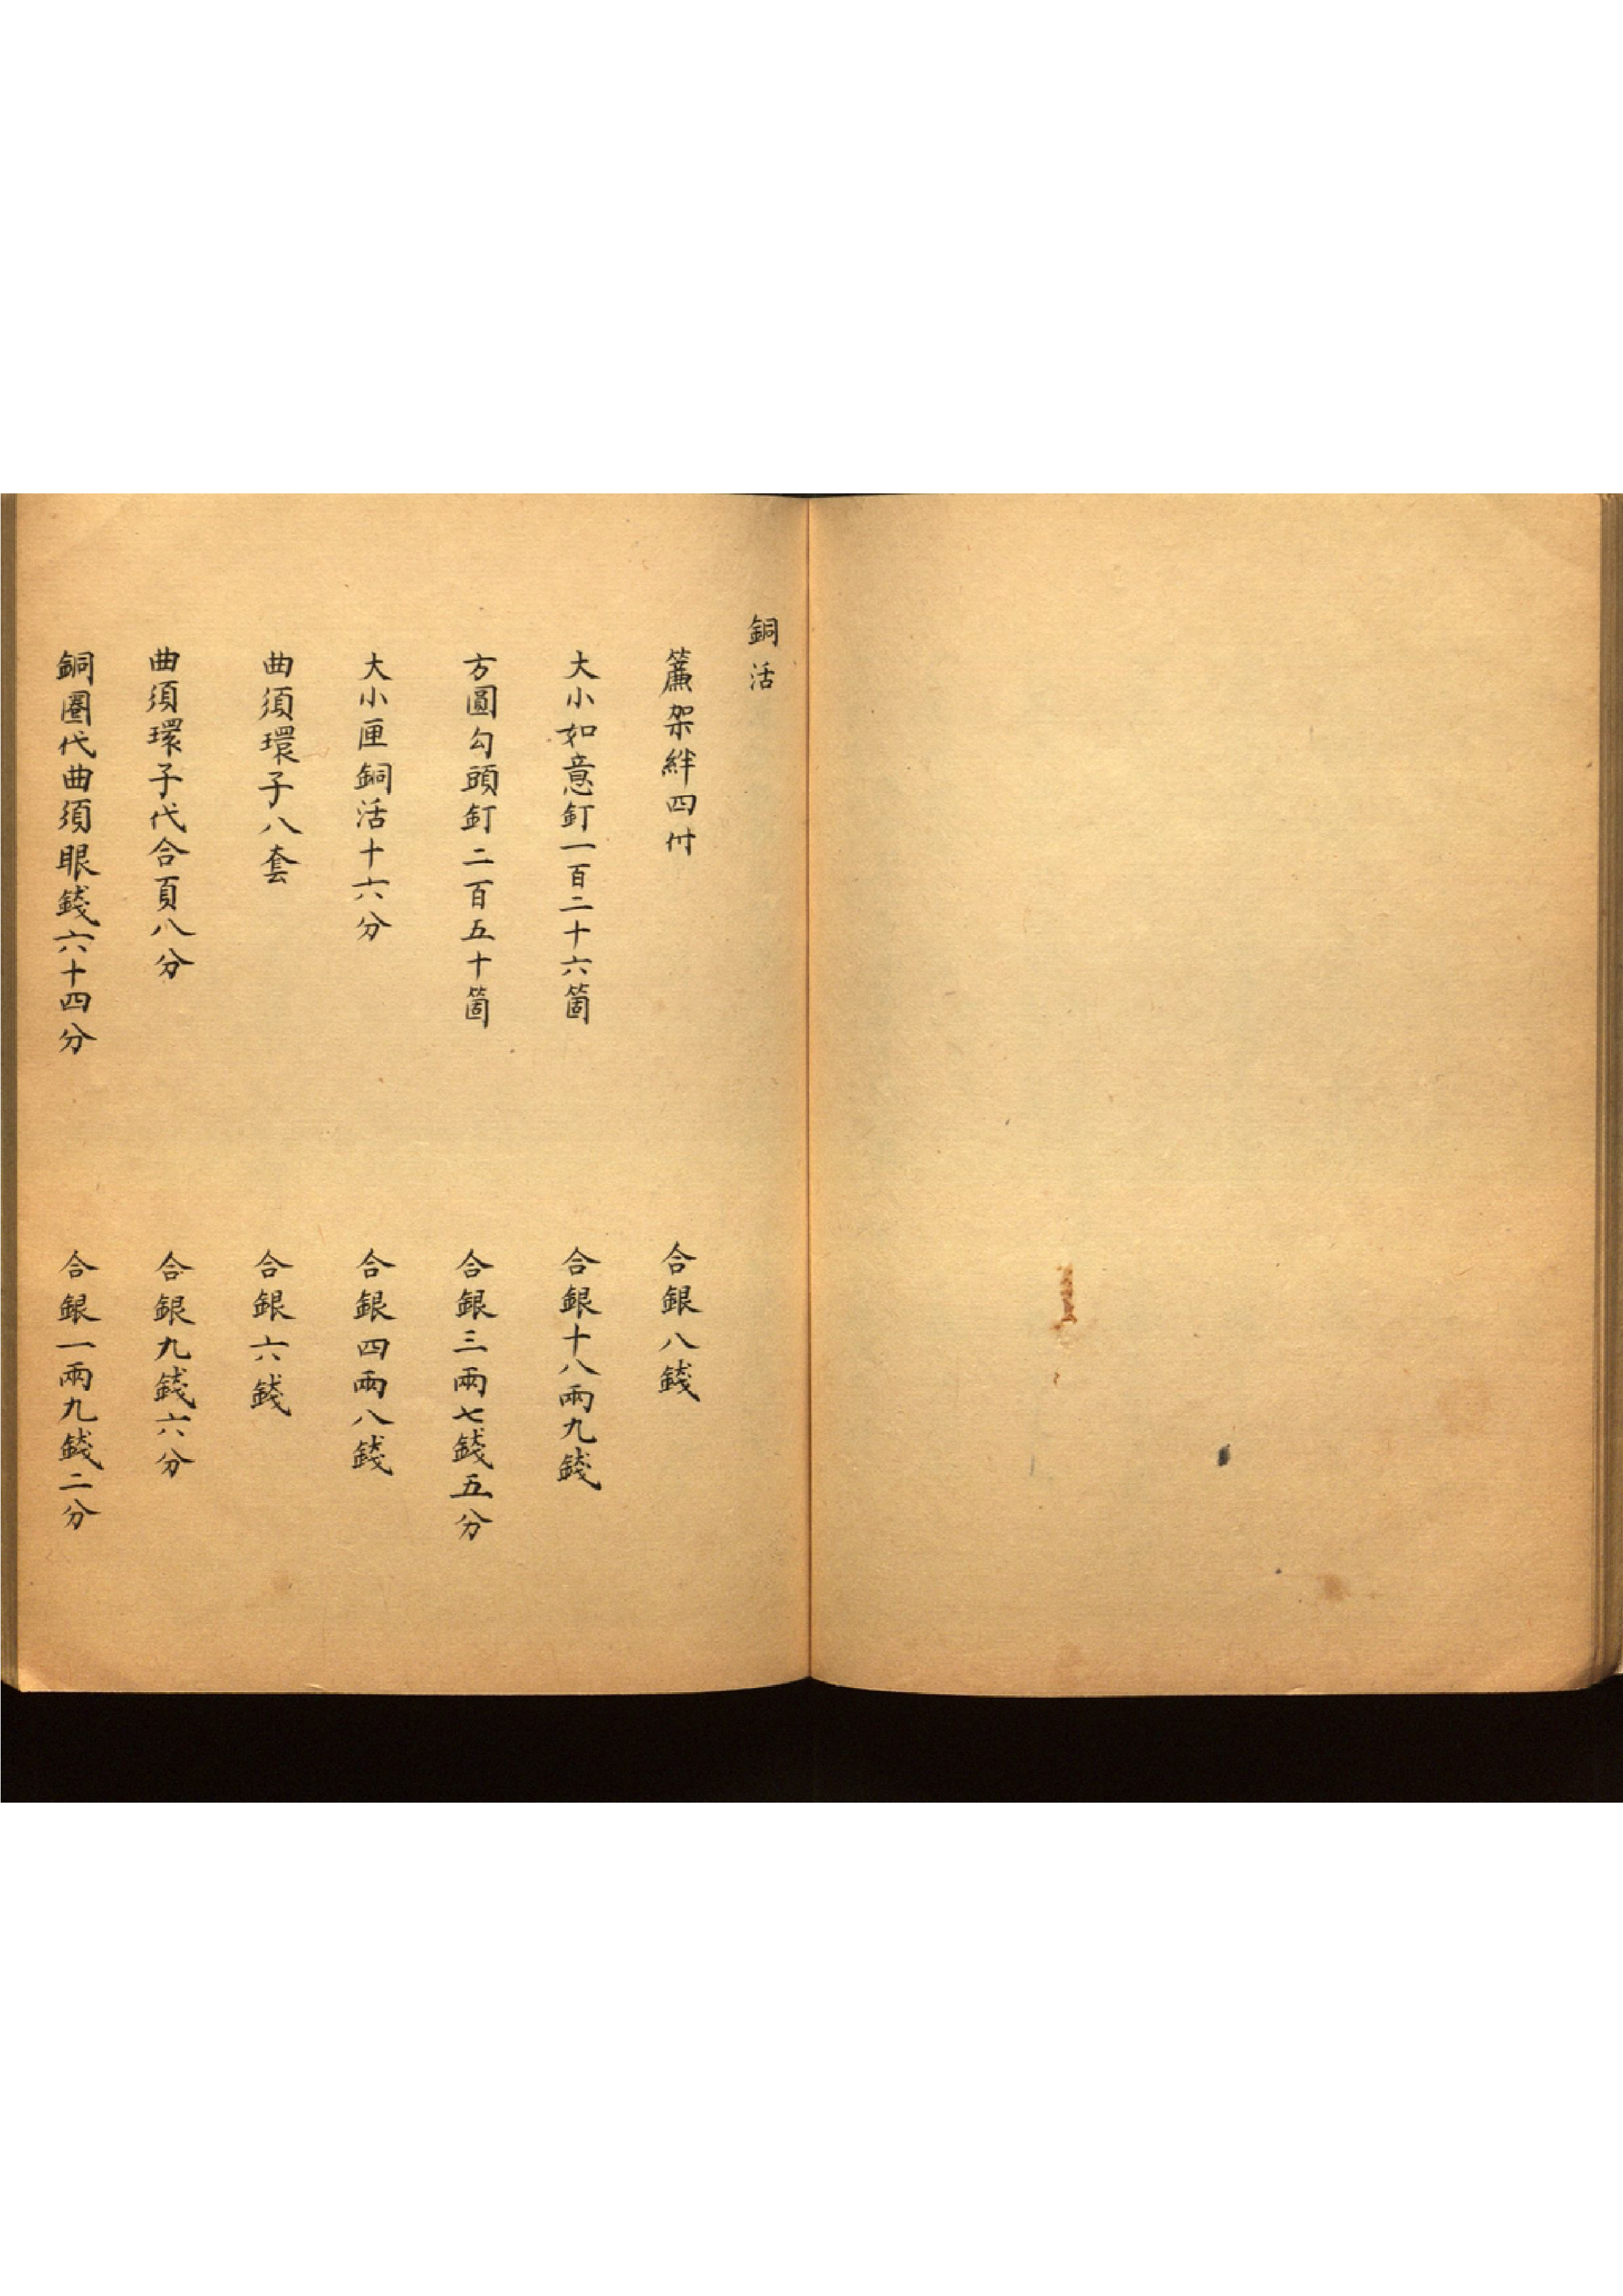 銅活
簾架絆四付　合銀八錢
大小如意釘一百二十六箇　合銀十八兩九錢
方圓勾頭釘二百五十箇　合銀三兩七錢五分
大小匣銅活十六分　合銀四兩八錢
曲須環子八套　合銀六錢
曲須環子代合頁八分　合銀九錢六分
銅圈代曲須眼錢六十四分　合銀一兩九錢二分